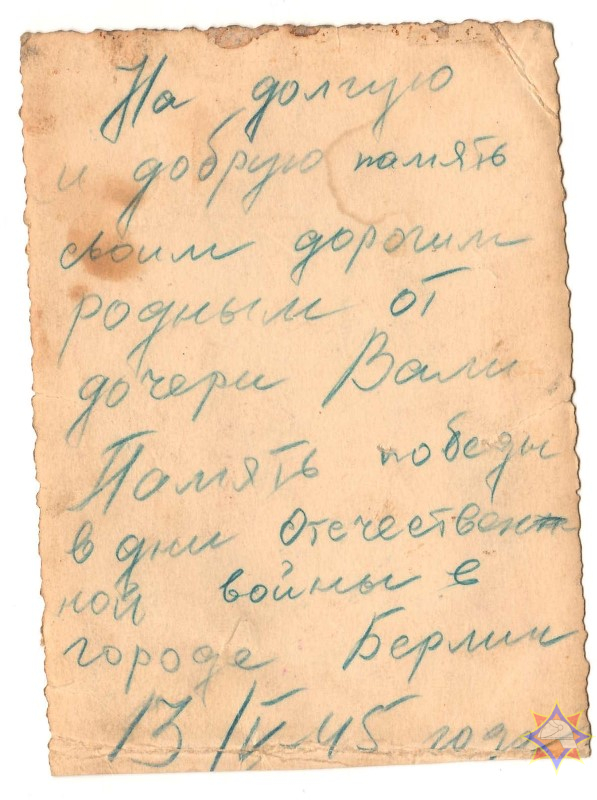 На долгую
и добрую память
своим дорогим
родным от
дочери Вали.
Память победы
в дни Отечествен
ной войны в
городе Берлин
13/V-45 года